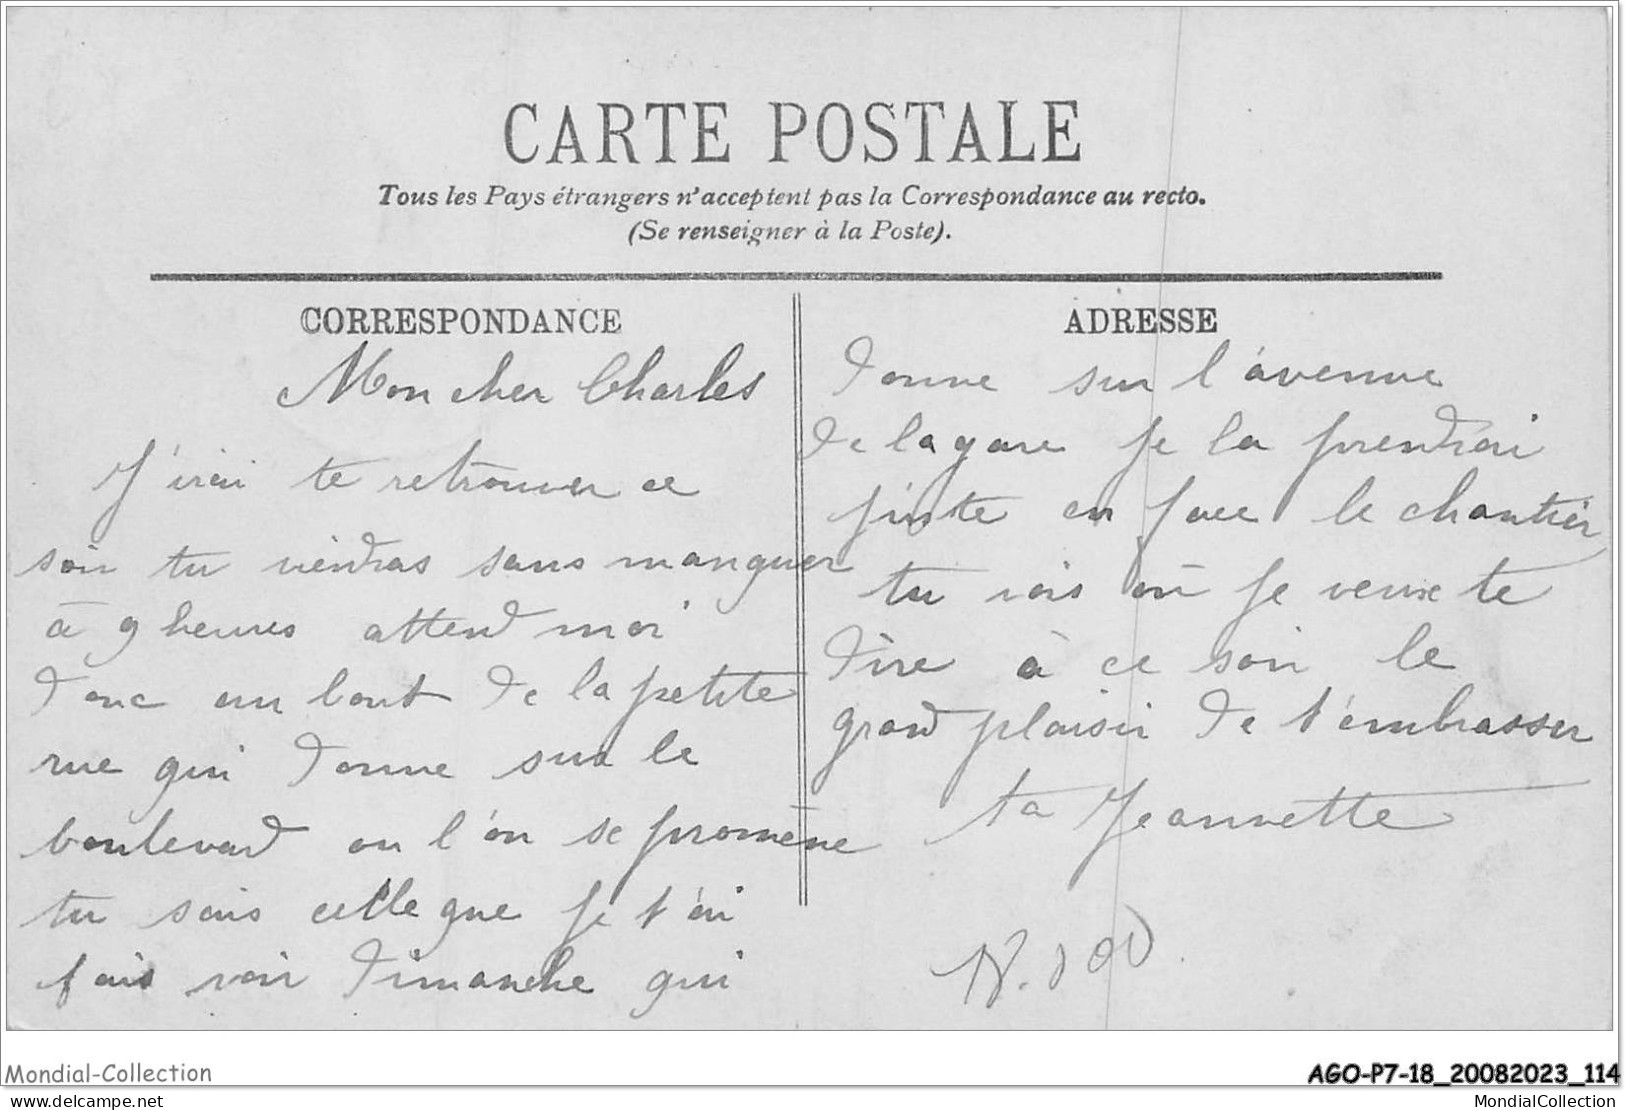 CARTE POSTALE
Tous les Pays étrangers n'acceptent pas la Correspondance au recto.
(Se renseigner à la Poste).
CORRESPONDANCE
Mon cher Charles
J'irai te retrouver ce
soir tu viendras sans manquer
à 9 heures attend moi
donc au bout de la petite
rue qui donne sur le
boulevard ou l'on se promène
tu sais celle que je t'ai
fais voir dimanche qui
ADRESSE
donne sur l'avenue
de la gare je la prendrai
juste en face le chantier
tu vois où je veux te
dire à ce soir le
grand plaisir de t'embrasser
ta Jeannette
Mondial-Collection
AGO-P7-18_20082023_114
delcampe.net
MondialCollection